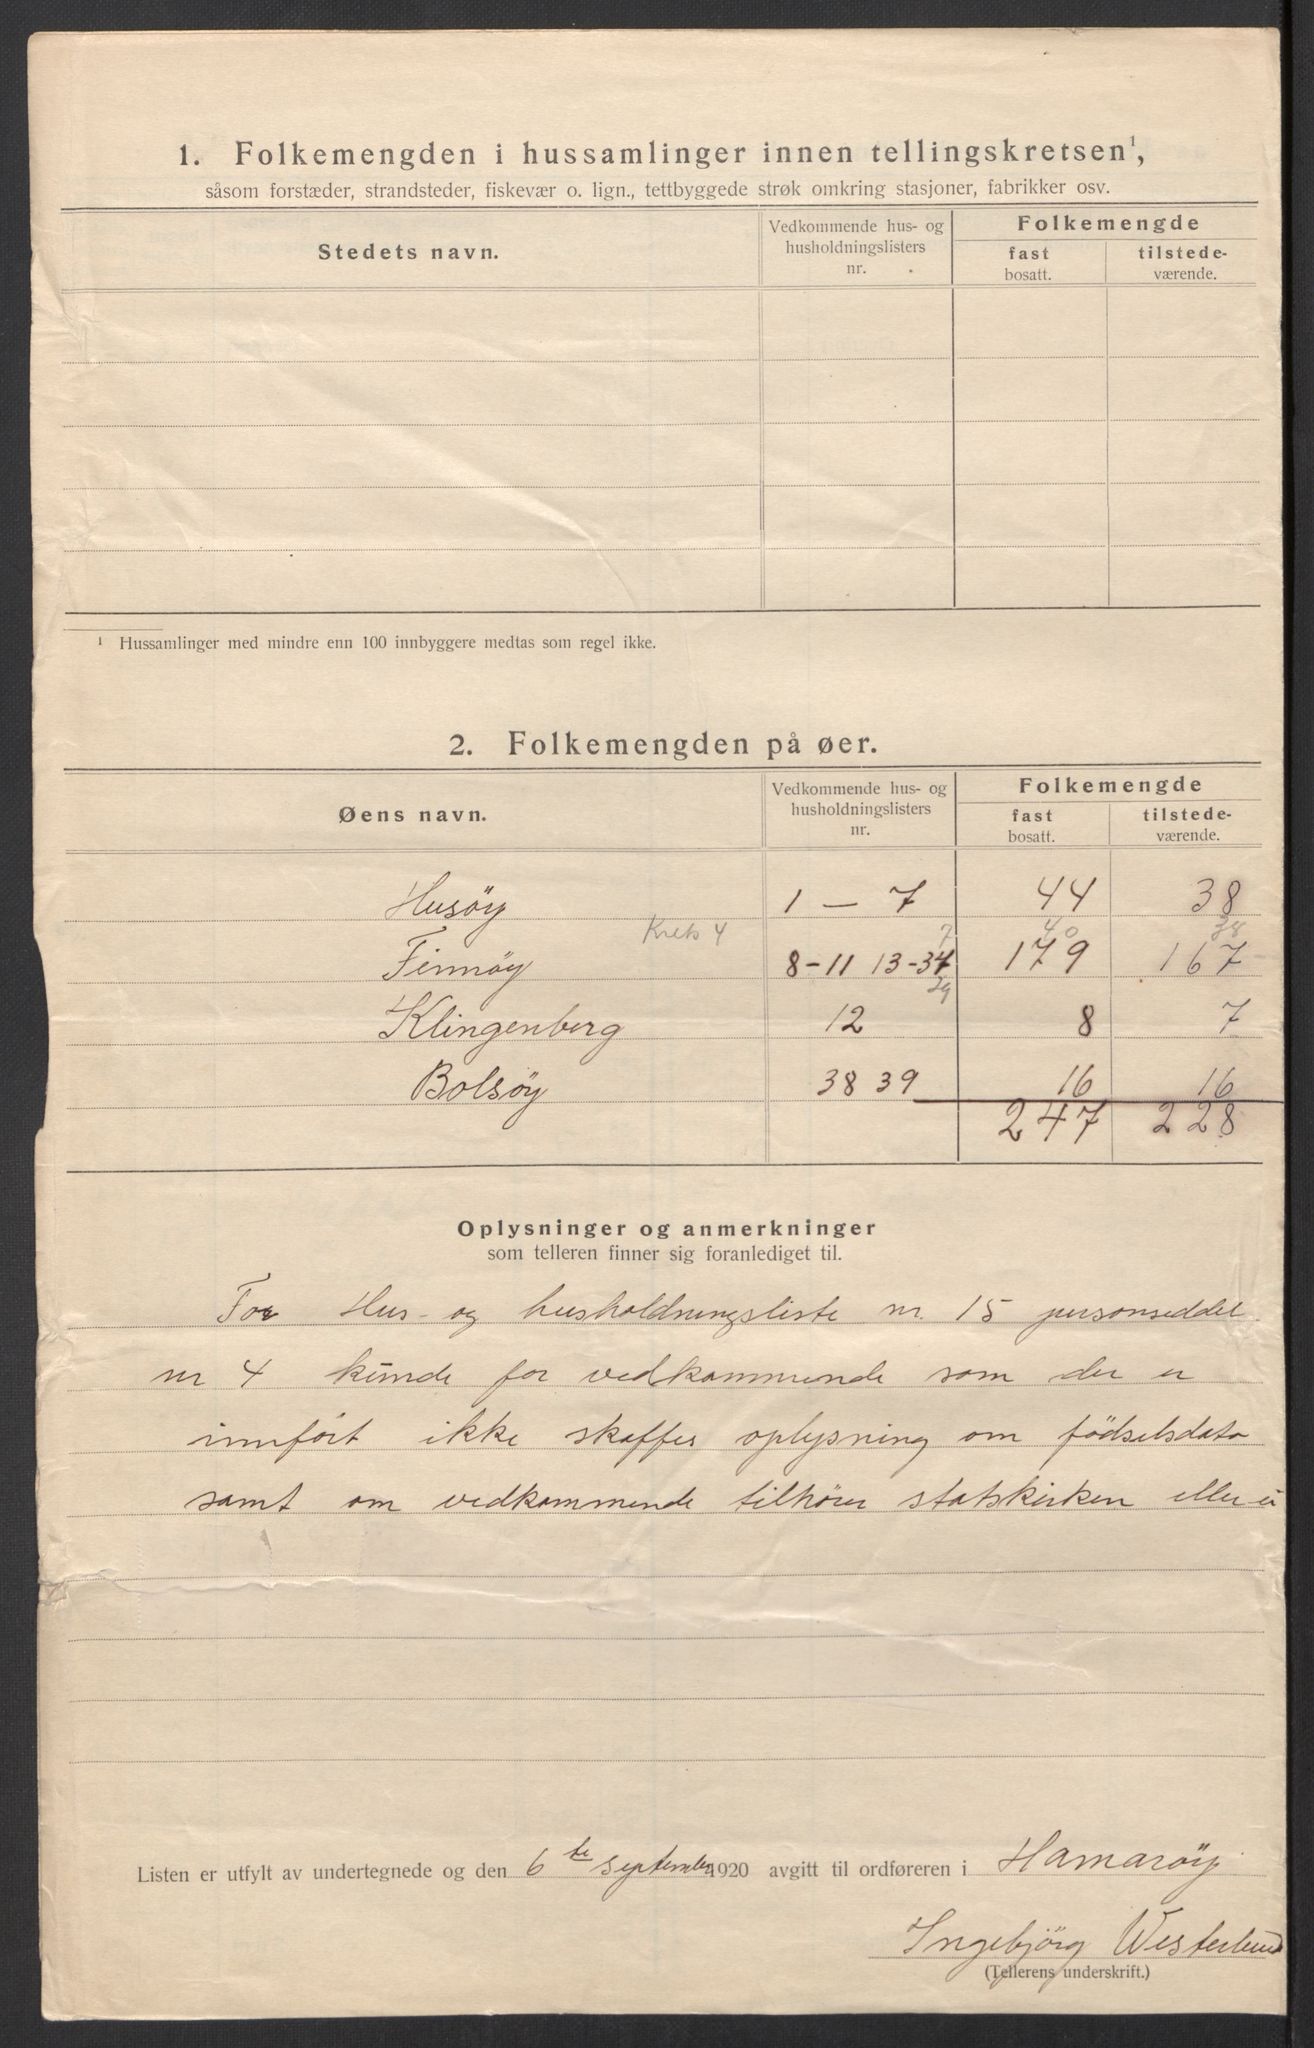 1. Folkemengden i hussamlinger innen tellingskretsen¹,
såsom forstæder, strandsteder, fiskevær o. lign., tettbyggede strøk omkring stasjoner, fabrikker osv.
Stedets navn. Vedkommende hus- og husholdningslisters nr. Folkemengde
fast bosatt. tilstede-værende.
¹ Hussamlinger med mindre enn 100 innbyggere medtas som regel ikke.
2. Folkemengden på øer.
Øens navn. Vedkommende hus- og husholdningslisters nr. Folkemengde
fast bosatt. tilstede-værende.
Husöy 1 — 7 44 38
Krets 4 7 40 38
Finnöy 8-11 13-37 179 167
29
Klingenberg 12 8 7
Bolsöy 38 39 16 16
247 228
Oplysninger og anmerkninger
som telleren finner sig foranlediget til.
For Hus- og husholdningsliste nr. 15 personseddel
nr 4 kunde for vedkommende som der er
innfört ikke skaffes oplysning om födselsdato
samt om vedkommende tilhörer statskirken eller ei
Listen er utfylt av undertegnede og den 6te september 1920 avgitt til ordføreren i Hamaröy
Ingebjörg Westerlund
(Tellerens underskrift.)